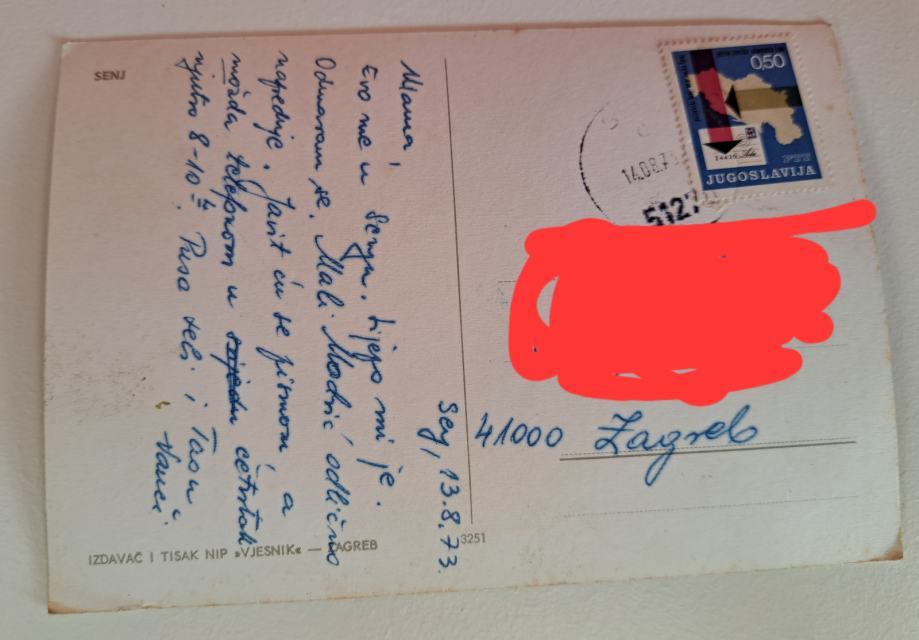 SENJ
Senj, 13.8.73.
Mama,
Evo me u Senju. Lijepo mi je.
Odmaram se. Mali Modrić odlično
napreduje. Javit ću se pismom, a
možda telefonom u četvrtak
ujutro 8-10h. Pusa tebi i
IZDAVAČ I TISAK NIP »VJESNIK« — ZAGREB
3251
0,50
24420
PTT
JUGOSLAVIJA
14.08.73
5127
41000 Zagreb